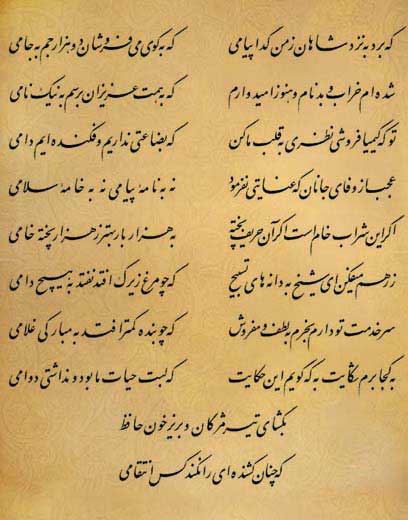 که برد به نزد شاهان ز من گدا پیامی که به کوی می فروشان دو هزار جم به جامی
شده ام خراب و بدنام و هنوز امیدوارم که به همت عزیزان برسم به نیک نامی
تو که کیمیا فروشی نظری به قلب ما کن که بضاعتی نداریم و فکنده ایم دامی
عجب از وفای جانان که عنایتی نفرمود نه به نامه پیامی نه به خامه سلامی
اگر این شراب خام است اگر آن حریف پخته به هزار بار بهتر ز هزار پخته خامی
ز رهم میفکن ای شیخ به دانه های تسبیح که چو مرغ زیرک افتد نفتد به هیچ دامی
سر خدمت تو دارم بخرم به لطف و مفروش که چو بنده کمتر افتد به مبارکی غلامی
به کجا برم شکایت به که گویم این حکایت که لبت حیات ما بود و نداشتی دوامی
بگشای تیر مژگان و بریز خون حافظ
که چنان کشنده ای را نکند کس انتقامی